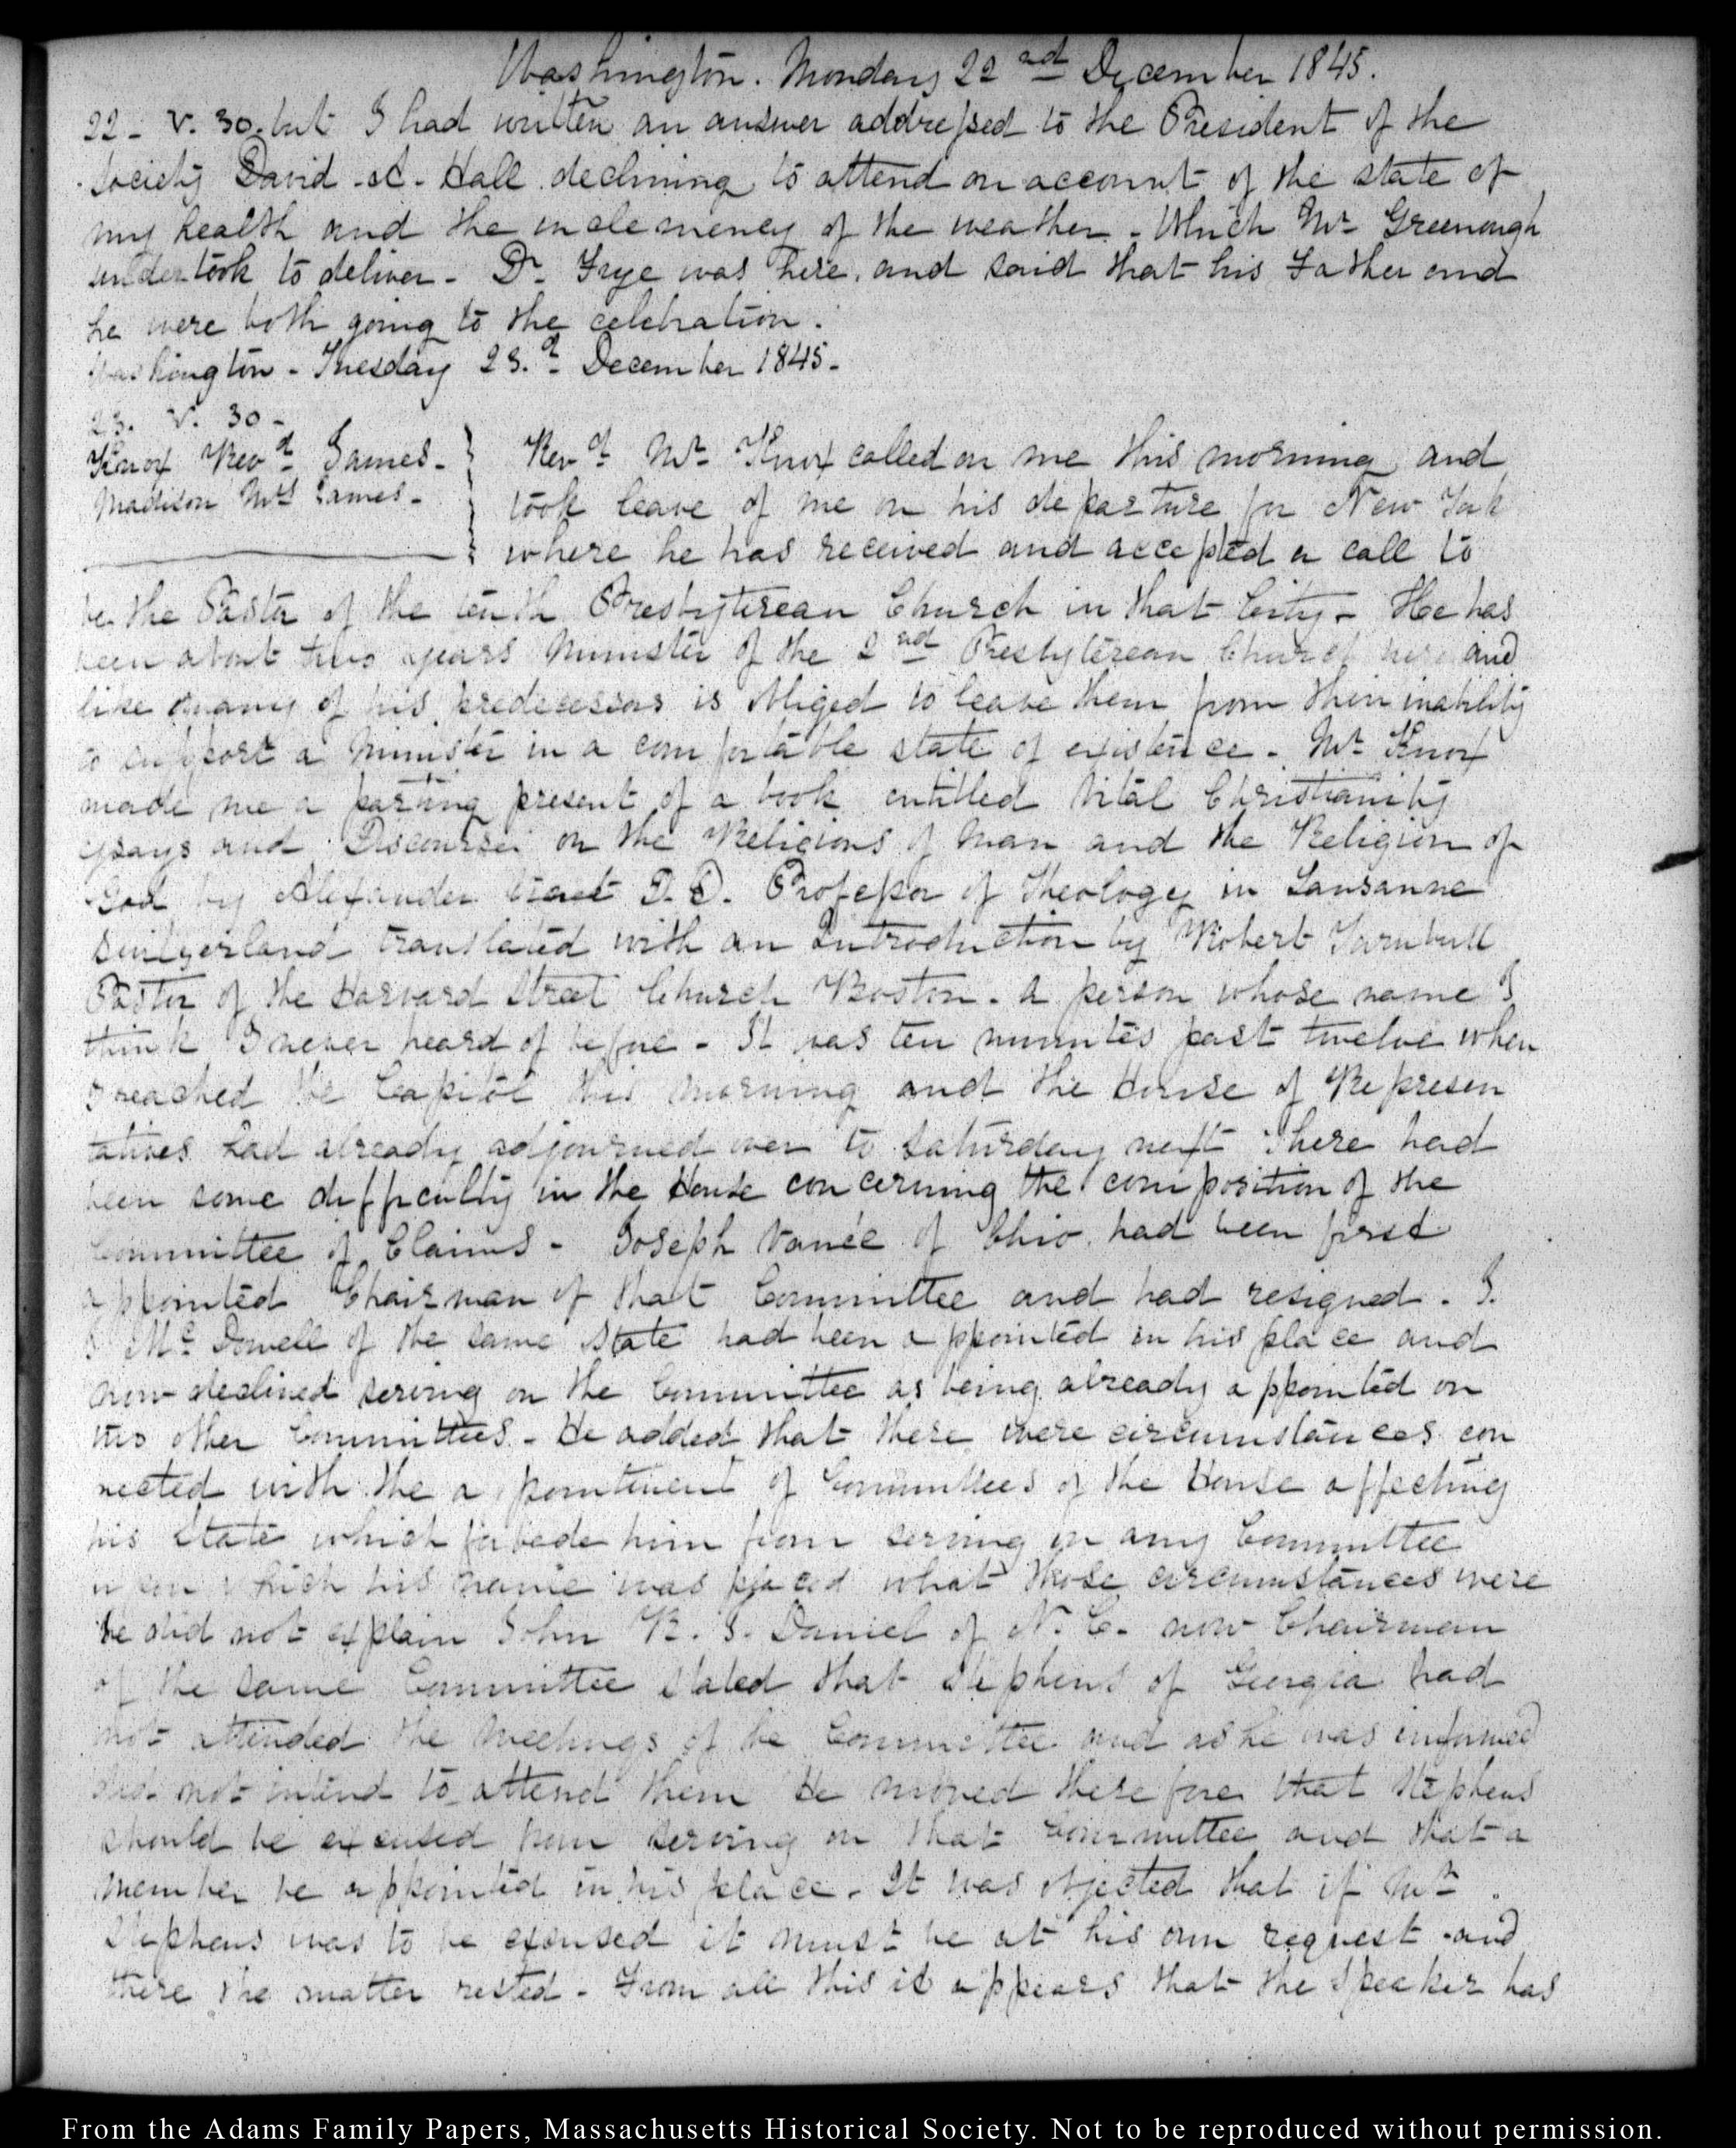 Washington. Monday 22nd December 1845.
22 - V. 30. but I had written an answer addressed to the President of the
Society David A. Hall declining to attend on account of the state of
my health and the inclemency of the weather - Which Mr Greenough
undertook to deliver - Dr Frye was here, and said that his Father and
he were both going to the celebration.
Washington - Tuesday 23.d December 1845 -
23. V. 30 -
Knox Revd James -
Madison Mrs James -
Revd Mr Knox called on me this morning and
took leave of me on his departure for New York
where he has received and accepted a call to
be the Pastor of the tenth Presbyterean Church in that City - He has
been about two years Minister of the 2nd Presbyterean Church here and
like many of his predecessors is obliged to leave them from their inability
to support a Minister in a comfortable state of existence - Mr Knox
made me a parting present of a book entitled Vital Christianity
essays and Discourses on the Religions of Man and the Religion of
God by Alexander Vinet D.D. Professor of Theology in Lausanne
Switzerland translated with an Introduction by Robert Turnbull
Pastor of the Harvard Street Church Boston - a person whose name I
think I never heard of before - It was ten minutes past twelve when
I reached the Capitol this morning and the House of Represen
tatives had already adjourned over to Saturday next There had
been some difficulty in the House concerning the composition of the
Committee of Claims - Joseph Vance of Ohio had been first
appointed Chairman of that Committee and had resigned. J.
J Mc Dowell of the same State had been appointed in his place and
now declined serving on the Committee as being already appointed on
two other Committees - He added that there were circumstances con
nected with the appointment of Committees of the House affecting
his State which forbade him from serving on any Committee
upon which his name was placed what those circumstances were
he did not explain John R. J. Daniel of N. C. now Chairman
of the same Committee stated that Stephens of Georgia had
not attended the meetings of the Committee and as he was informed
did not intend to attend them He moved therefore that Stephens
should be excused from serving on that Committee and that a
member be appointed in his place. It was objected that if Mr
Stephens was to be excused it must be at his own request and
there the matter rested - From all this it appears that the Speaker has
From the Adams Family Papers, Massachusetts Historical Society. Not to be reproduced without permission.